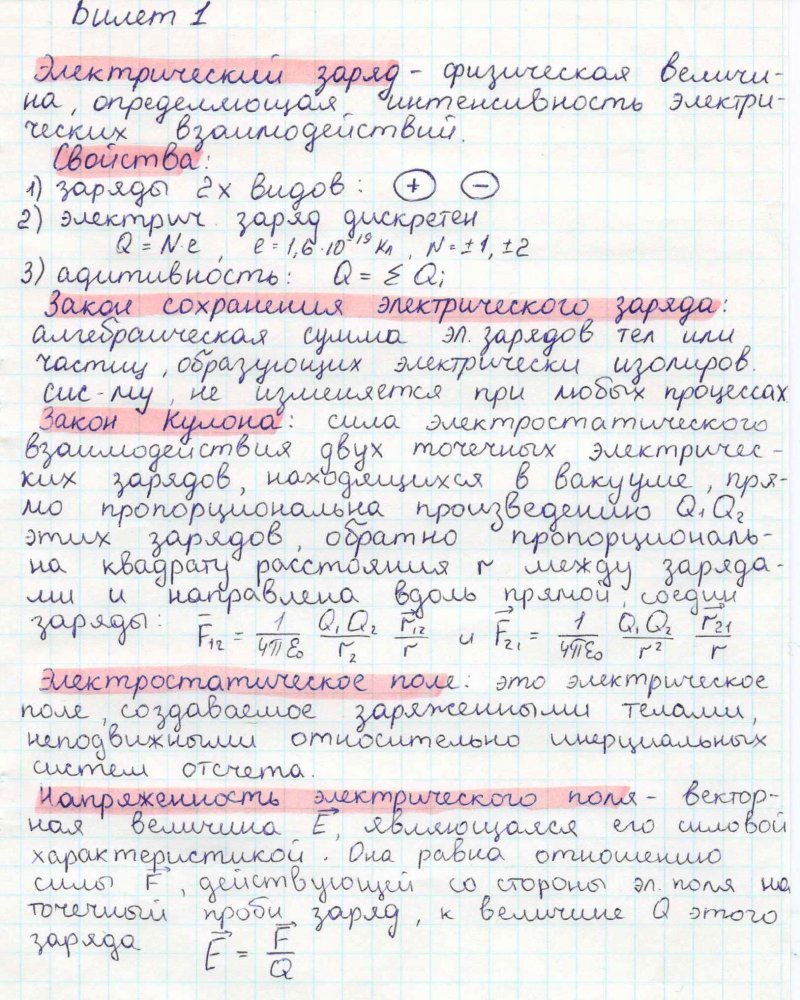 Билет 1
Электрический заряд - физическая величи-
на, определяющая интенсивность электри-
ческих взаимодействий.
Свойства:
1) заряды 2х видов: + −
2) электрич. заряд дискретен
Q = N e, e = 1,6·10⁻¹⁹ Кл, N = ±1, ±2
3) адитивность: Q = Σ Qᵢ
Закон сохранения электрического заряда:
алгебраическая сумма эл. зарядов тел или
частиц, образующих электрически изолиров.
сис-му, не изменяется при любых процессах
Закон Кулона: сила электростатического
взаимодействия двух точечных электричес-
ких зарядов, находящихся в вакууме, пря-
мо пропорциональна произведению Q₁Q₂
этих зарядов, обратно пропорциональ-
на квадрату расстояния r между заряда-
ми и направлена вдоль прямой, соедин
заряды: F̄₁₂ = 1/4πε₀ Q₁Q₂/r₂ r⃗₁₂/r и F⃗₂₁ = 1/4πε₀ Q₁Q₂/r² r⃗₂₁/r
Электростатическое поле: это электрическое
поле, создаваемое заряженными телами,
неподвижными относительно инерциальных
систем отсчета.
Напряженность электрического поля - вектор-
ная величина E⃗, являющаяся его силовой
характеристикой. Она равна отношению
силы F⃗, действующей со стороны эл. поля на
точечный пробн заряд, к величине Q этого
заряда E⃗ = F⃗/Q